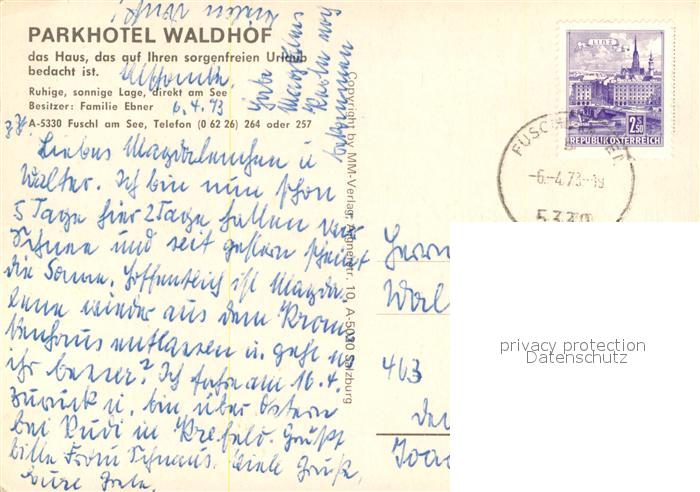 PARKHOTEL WALDHOF
das Haus, das auf Ihren sorgenfreien Urlaub
bedacht ist.
Ruhige, sonnige Lage, direkt am See
Besitzer: Familie Ebner
6.4.73
A-5330 Fuschl am See, Telefon (0 62 26) 264 oder 257
Liebes Magdalenchen u
Walter. Ich bin nun schon
5 Tage hier 2 Tage hatten wir
Schnee und seit gestern scheint
die Sonne. Hoffentlich ist Magda
lene wieder aus dem Kran
kenhaus entlassen u. geht
ihr besser? Ich fahre am 16.4.
zurück u. bin über Ostern
bei Rudi in Krefeld. Grüßt
bitte Frau Schnaus. Viele Grüße,
Eure
Habe
Karte
bekommen
Copyright by MM-Verlag, Aignerstr. 10, A-5020 Salzburg
LINZ
2.50
REPUBLIK ÖSTERREICH
FUSCHL
-6.-4.73-19
5330
Herrn
Wal
463
privacy protection
Datenschutz